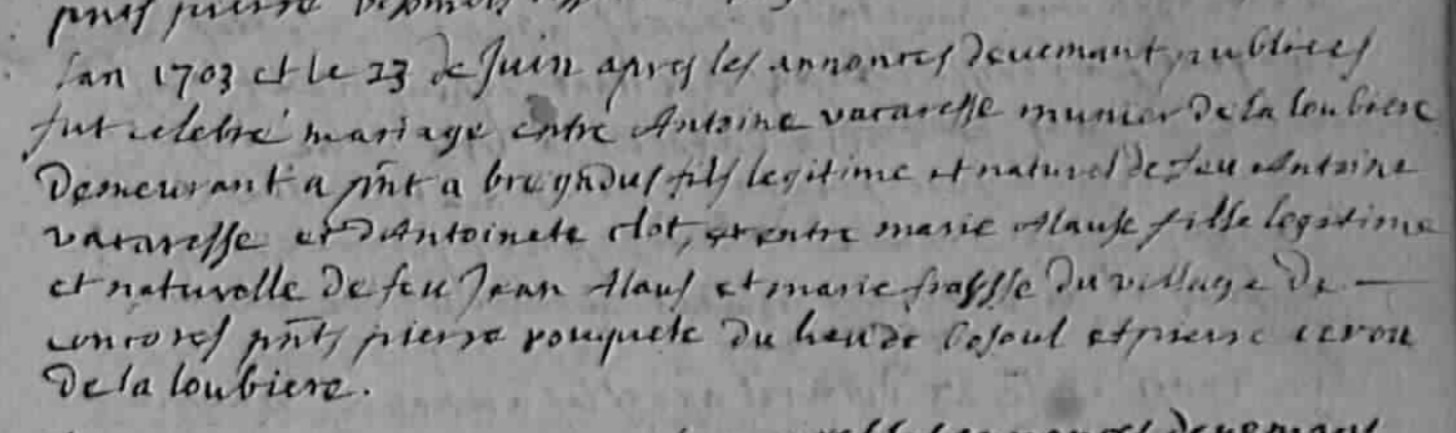 pnts pierre
Lan 1703 et le 23 de Juin apres les annonces deuemant publiees
fut celebré mariage entre Antoine vararesse munier de la loubiere
Demeurant a pnt a bregndus fils legitime et naturel de feu Antoine
vararesse et d'Antoinete clot, et entre marie Alause fille legitime
et naturelle de feu Jean Alaus et marie frassse du village de —
concores pnts pierre rouquete du lieu de besoul et pierre cerou
de la loubiere.
deuemant